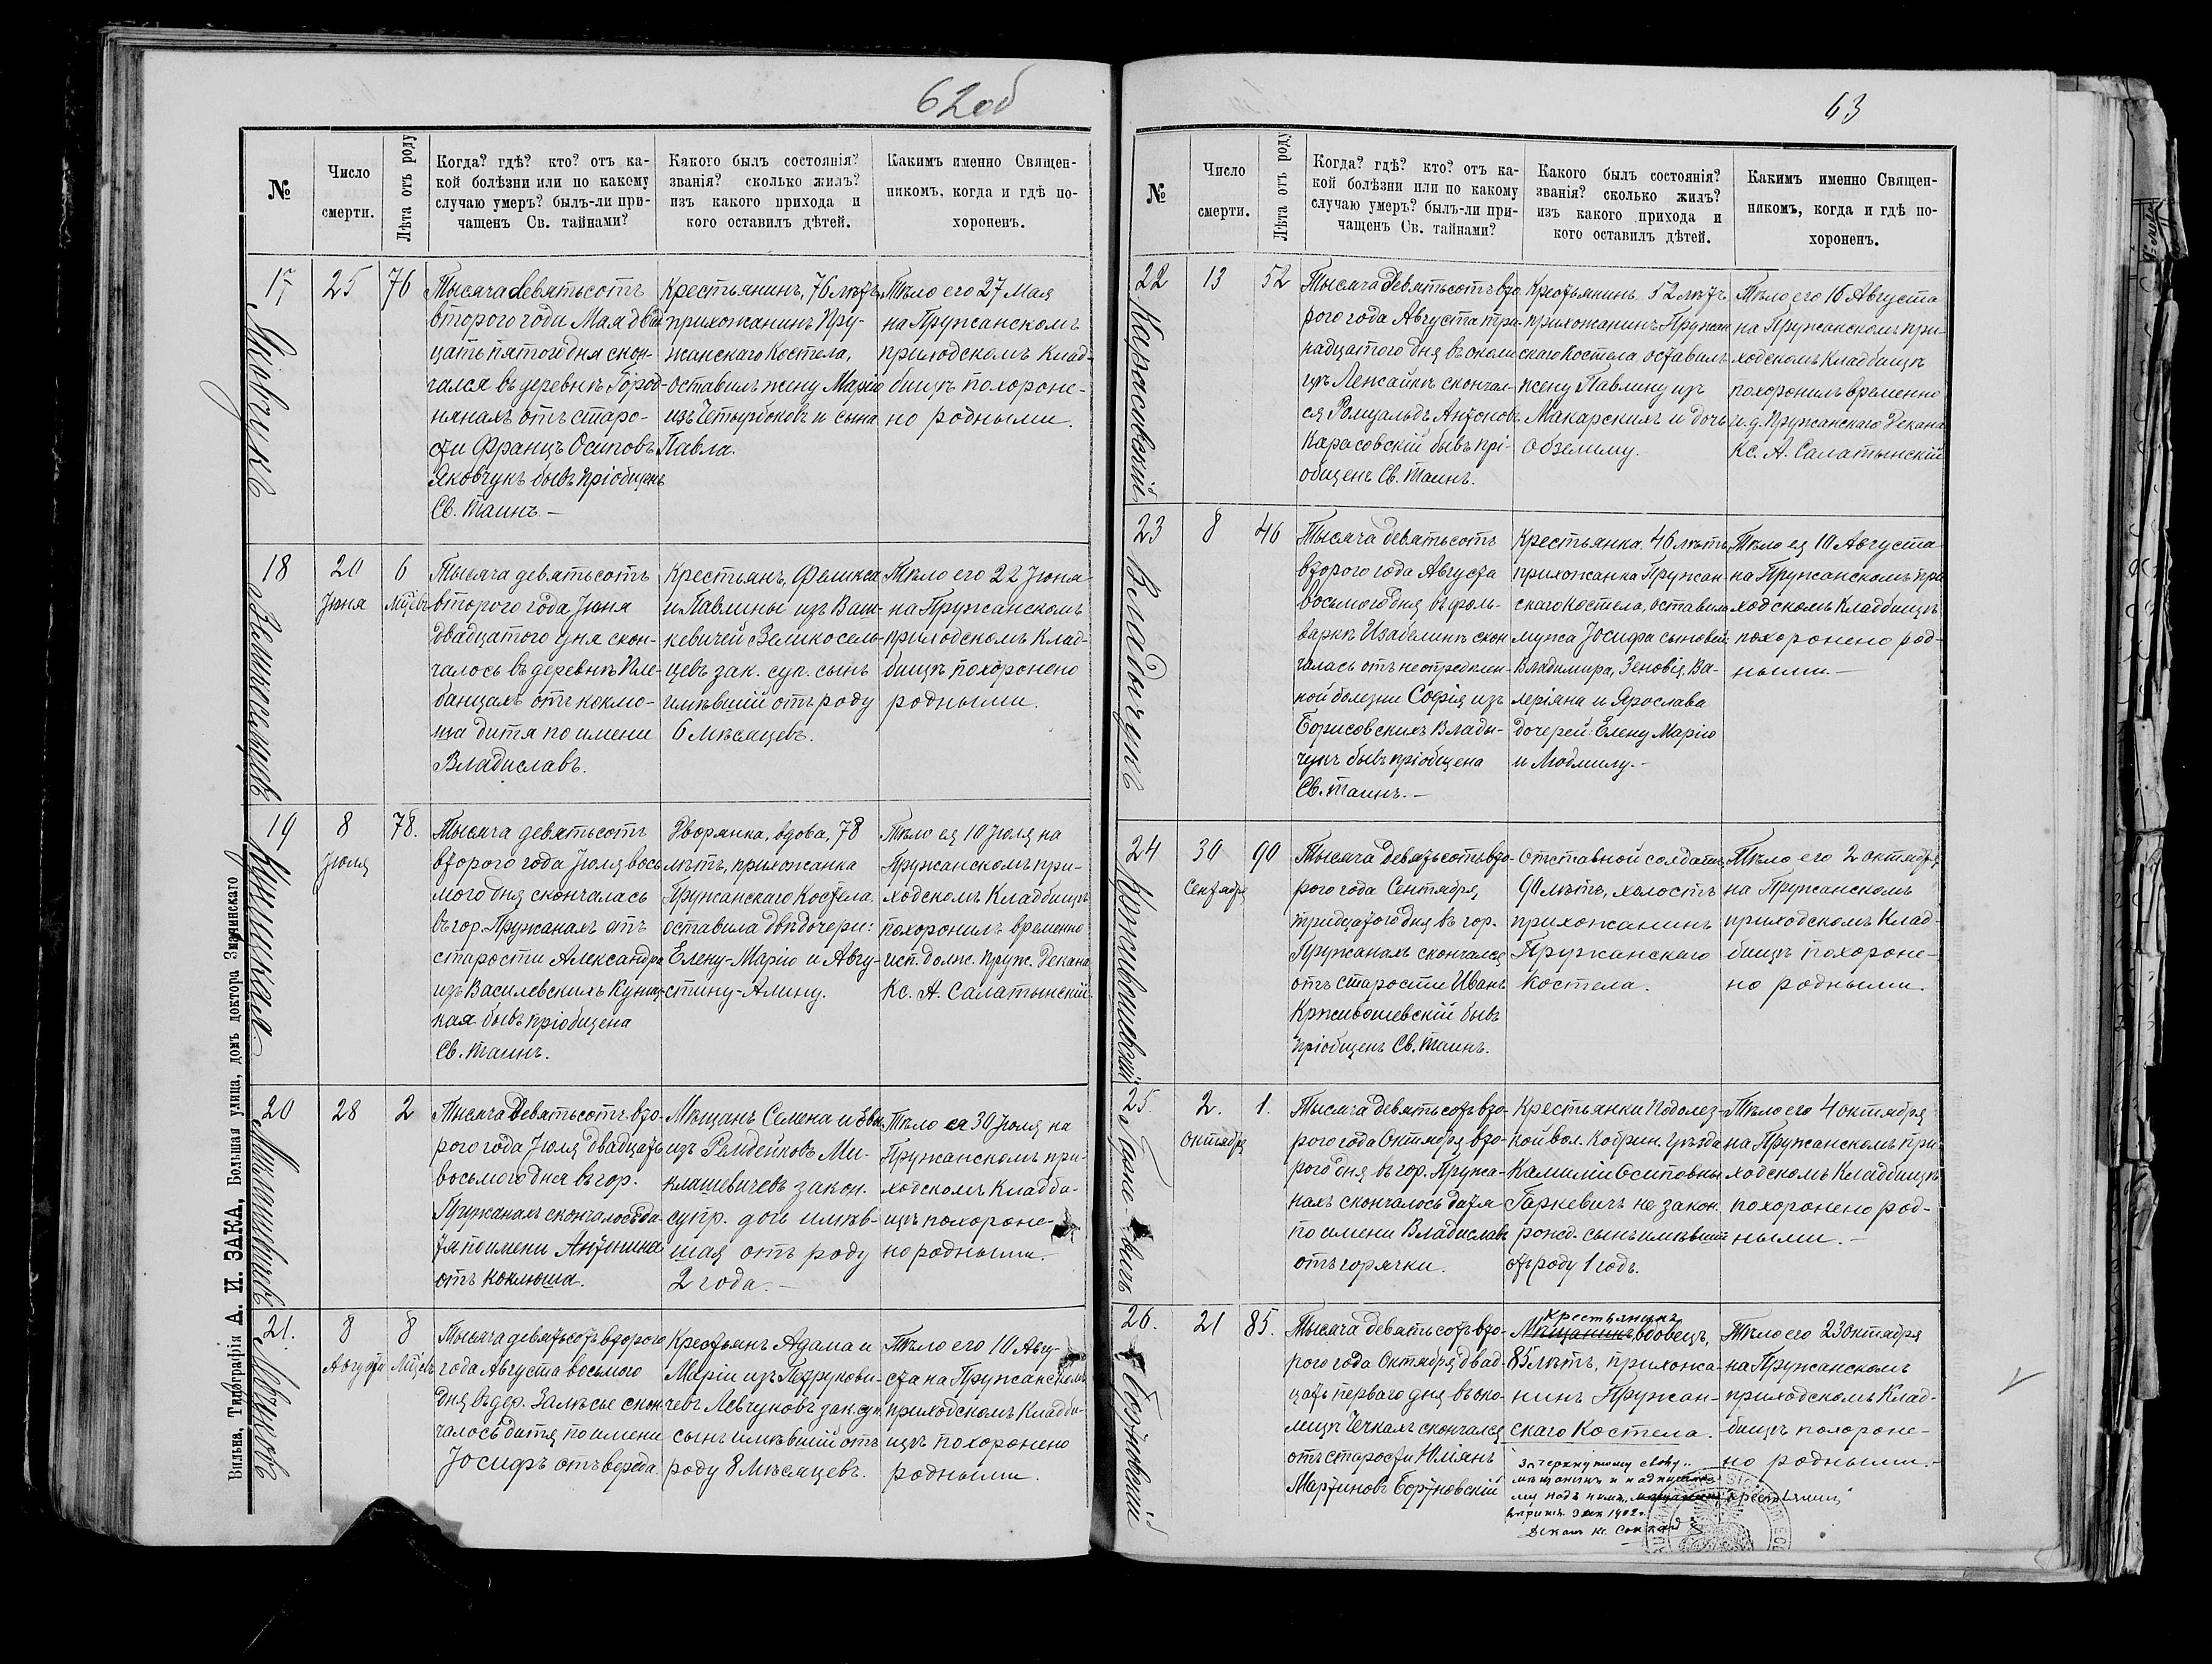 62об
№
Число
смерти.
Лѣта отъ роду
Когда? гдѣ? кто? отъ ка-
кой болѣзни или по какому
случаю умеръ? былъ-ли при-
чащенъ Св. тайнами?
Какого былъ состоянія?
званія? сколько жилъ?
изъ какого прихода и
кого оставилъ дѣтей.
Какимъ именно Священ-
никомъ, когда и гдѣ по-
хороненъ.
17
Яковчукъ
25
76
Тысяча девятьсотъ
второго года Мая два
цать пятого дня скон-
чался въ деревнѣ Город-
нянахъ отъ старо-
сти Францъ Осиповъ
Яковчукъ бывъ пріобщенъ
Св. Таинъ. —
Крестьянинъ, 76 лѣтъ,
прихожанинъ Пру-
жанскаго Костела,
оставилъ жену Марію
изъ Четырбоковъ и сына
Павла.
Тѣло его 27 Мая
на Пружанскомъ
приходскомъ клад-
бищѣ похороне-
но родными.
18
Великоселцевъ
20
Іюня
6
Мѣсвъ
Тысяча девятьсотъ
второго года Іюня
двадцатого дня скон-
чалось въ деревнѣ Пле-
банцахъ отъ коклю-
ша дитя по имени
Владиславъ.
Крестьянъ, Феликса
и Павлины изъ Ваш-
кевичей Великосель-
цевъ зак. суп. сынъ
имѣвшій отъ роду
6 мѣсяцевъ.
Тѣло его 22 Іюня
на Пружанскомъ
приходскомъ Клад-
бищѣ похоронено
родными.
19
Куницкая
8
Іюля
78.
Тысяча девятьсотъ
второго года Іюля вось
мого дня скончалась
въ гор. Пружанахъ отъ
старости Александра
изъ Василевскихъ Куниц-
кая бывъ пріобщена
Св. Таинъ.
Дворянка, вдова, 78
лѣтъ, прихожанка
Пружанскаго Костела,
оставила двѣ дочери:
Елену-Марію и Авгу-
стину-Алину.
Тѣло ея 10 Іюля на
Пружанскомъ при-
ходскомъ Кладбищѣ
похоронилъ временно
исп. долж. Пруж. Декана
Кс. А. Салатынскій.
20
Миклашевичевъ
28
2
Тысяча девятьсотъ вто-
рого года Іюля двадцать
восьмого дня въ гор.
Пружанахъ скончалось ди-
тя по имени Антонина
отъ коклюша.
Мѣщанъ Семена и Евы
изъ Рендейковъ Ми-
клашевичевъ закон.
супр. дочь имѣв-
шая отъ роду
2 года. —
Тѣло ея 30 Іюля на
Пружанскомъ при-
ходскомъ Кладби-
щѣ похороне-
но родными. —
21.
Левчуковъ
8
Августа
8
Мѣсвъ
Тысяча девятьсотъ второго
года Августа восьмого
дня въ дер. Залѣсье скон
чалось дитя по имени
Іосифъ отъ вереда.
Крестьянъ Адама и
Маріи изъ Петрукови-
чевъ Левчуковъ зак. суп.
сынъ имѣвшій отъ
роду 8 мѣсяцевъ.
Тѣло его 10 Авгу-
ста на Пружанскомъ
приходскомъ Кладби-
щѣ похоронено
родными.
Вильна, Типографія А. И. ЗАКА, Большая улица, домъ доктора Змачинскаго
63
№
Число
смерти.
Лѣта отъ роду
Когда? гдѣ? кто? отъ ка-
кой болѣзни или по какому
случаю умеръ? былъ-ли при-
чащенъ Св. тайнами?
Какого былъ состоянія?
званія? сколько жилъ?
изъ какого прихода и
кого оставилъ дѣтей.
Какимъ именно Священ-
никомъ, когда и гдѣ по-
хороненъ.
22
Карасовскій
13
52
Тысяча девятьсотъ вто
рого года Августа три-
надцатого дня въ околи
цѣ Ленсайкѣ скончал-
ся Ромуальдъ Антоновъ
Карасовскій бывъ прі-
общенъ Св. Таинъ.
Крестьянинъ 52 лѣтъ
прихожанинъ Пружан
скаго Костела оставилъ
жену Павлину изъ
Макарскихъ и дочь
Тѣло его 16 Августа
на Пружанскомъ при-
ходскомъ Кладбищѣ
похоронилъ временно
и. д. Пружанскаго Декана
Кс. А. Салатынскій
23
Владычукъ
8
46
Тысяча девятьсотъ
второго года Августа
восьмого дня въ фоль-
варкѣ Изабелинѣ скон
чалась отъ неопредѣлен-
ной болезни Софія изъ
Борисовскихъ Влады-
чукъ бывъ пріобщена
Св. Таинъ. —
Крестьянка 46 лѣтъ,
прихожанка Пружан-
скаго Костела, оставила
мужа Іосифа сыновей:
Владимира, Зеновія, Ва-
леріяна и Ярослава
дочерей: Елену Марію
и Людмилу. —
Тѣло ея 10 Августа
на Пружанскомъ при
ходскомъ Кладбищѣ
похоронено род-
ными. —
24
Крживошевскій
30
Сентября
90
Тысяча девятьсотъ вто-
рого года Сентября,
тридцатого дня въ гор.
Пружанахъ скончался
отъ старости Иванъ
Крживошевскій бывъ
пріобщенъ Св. Таинъ.
Отставной солдатъ
90 лѣтъ, холостъ
прихожанинъ
Пружанскаго
Костела.
Тѣло его 2 октября
на Пружанскомъ
приходскомъ Клад-
бищѣ похороне-
но родными.
25.
Гарке-
вичъ
2.
октября
1.
Тысяча девятьсотъ вто-
рого года Октября вто-
рого дня въ гор. Пружа-
нахъ скончалось дитя
по имени Владиславъ
отъ горячки.
Крестьянки Подолез-
кой вол. Кобрин. Уѣзда
Камиліи Осиповны
Гаркевичъ не закон.
рожд. сынъ имѣвшій
отъ роду 1 годъ.
Тѣло его 4 октября
на Пружанскомъ при-
ходскомъ Кладбищѣ
похоронено род-
ными. —
26.
Бортновскій
21
85.
Тысяча девятьсотъ вто-
рого года Октября двад-
цать перваго дня въ око-
лицѣ Чечкахъ скончался
отъ старости Юліянъ
Мартиновъ Бортновскій
Крестьянинъ
Мѣщанинъ вдовецъ,
85 лѣтъ, прихожа-
нинъ Пружан-
скаго Костела.
Зачеркнутому слову
мѣщанинъ и надписан-
му надъ нимъ крестьянинъ
вѣрить
Деканъ кс.
Тѣло его 23 октября
на Пружанскомъ
приходскомъ Клад-
бищѣ похороне-
но родными. —